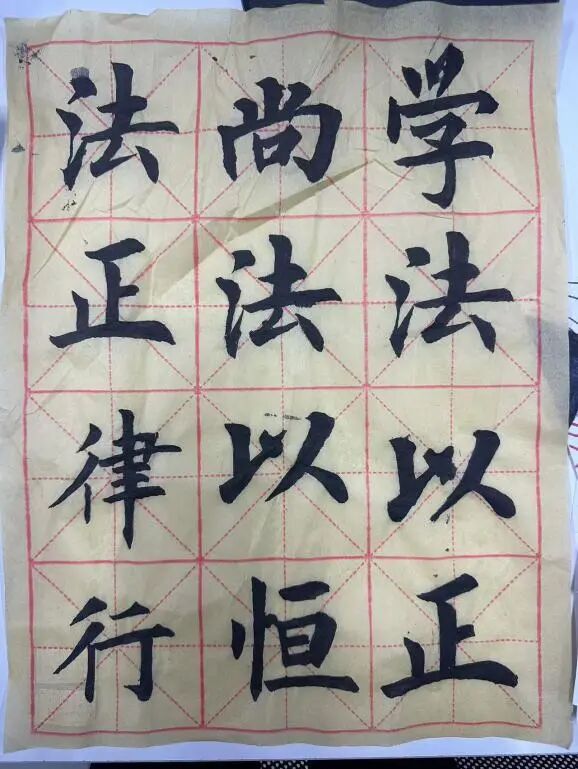 学法以正
尚法以恒
法正律行